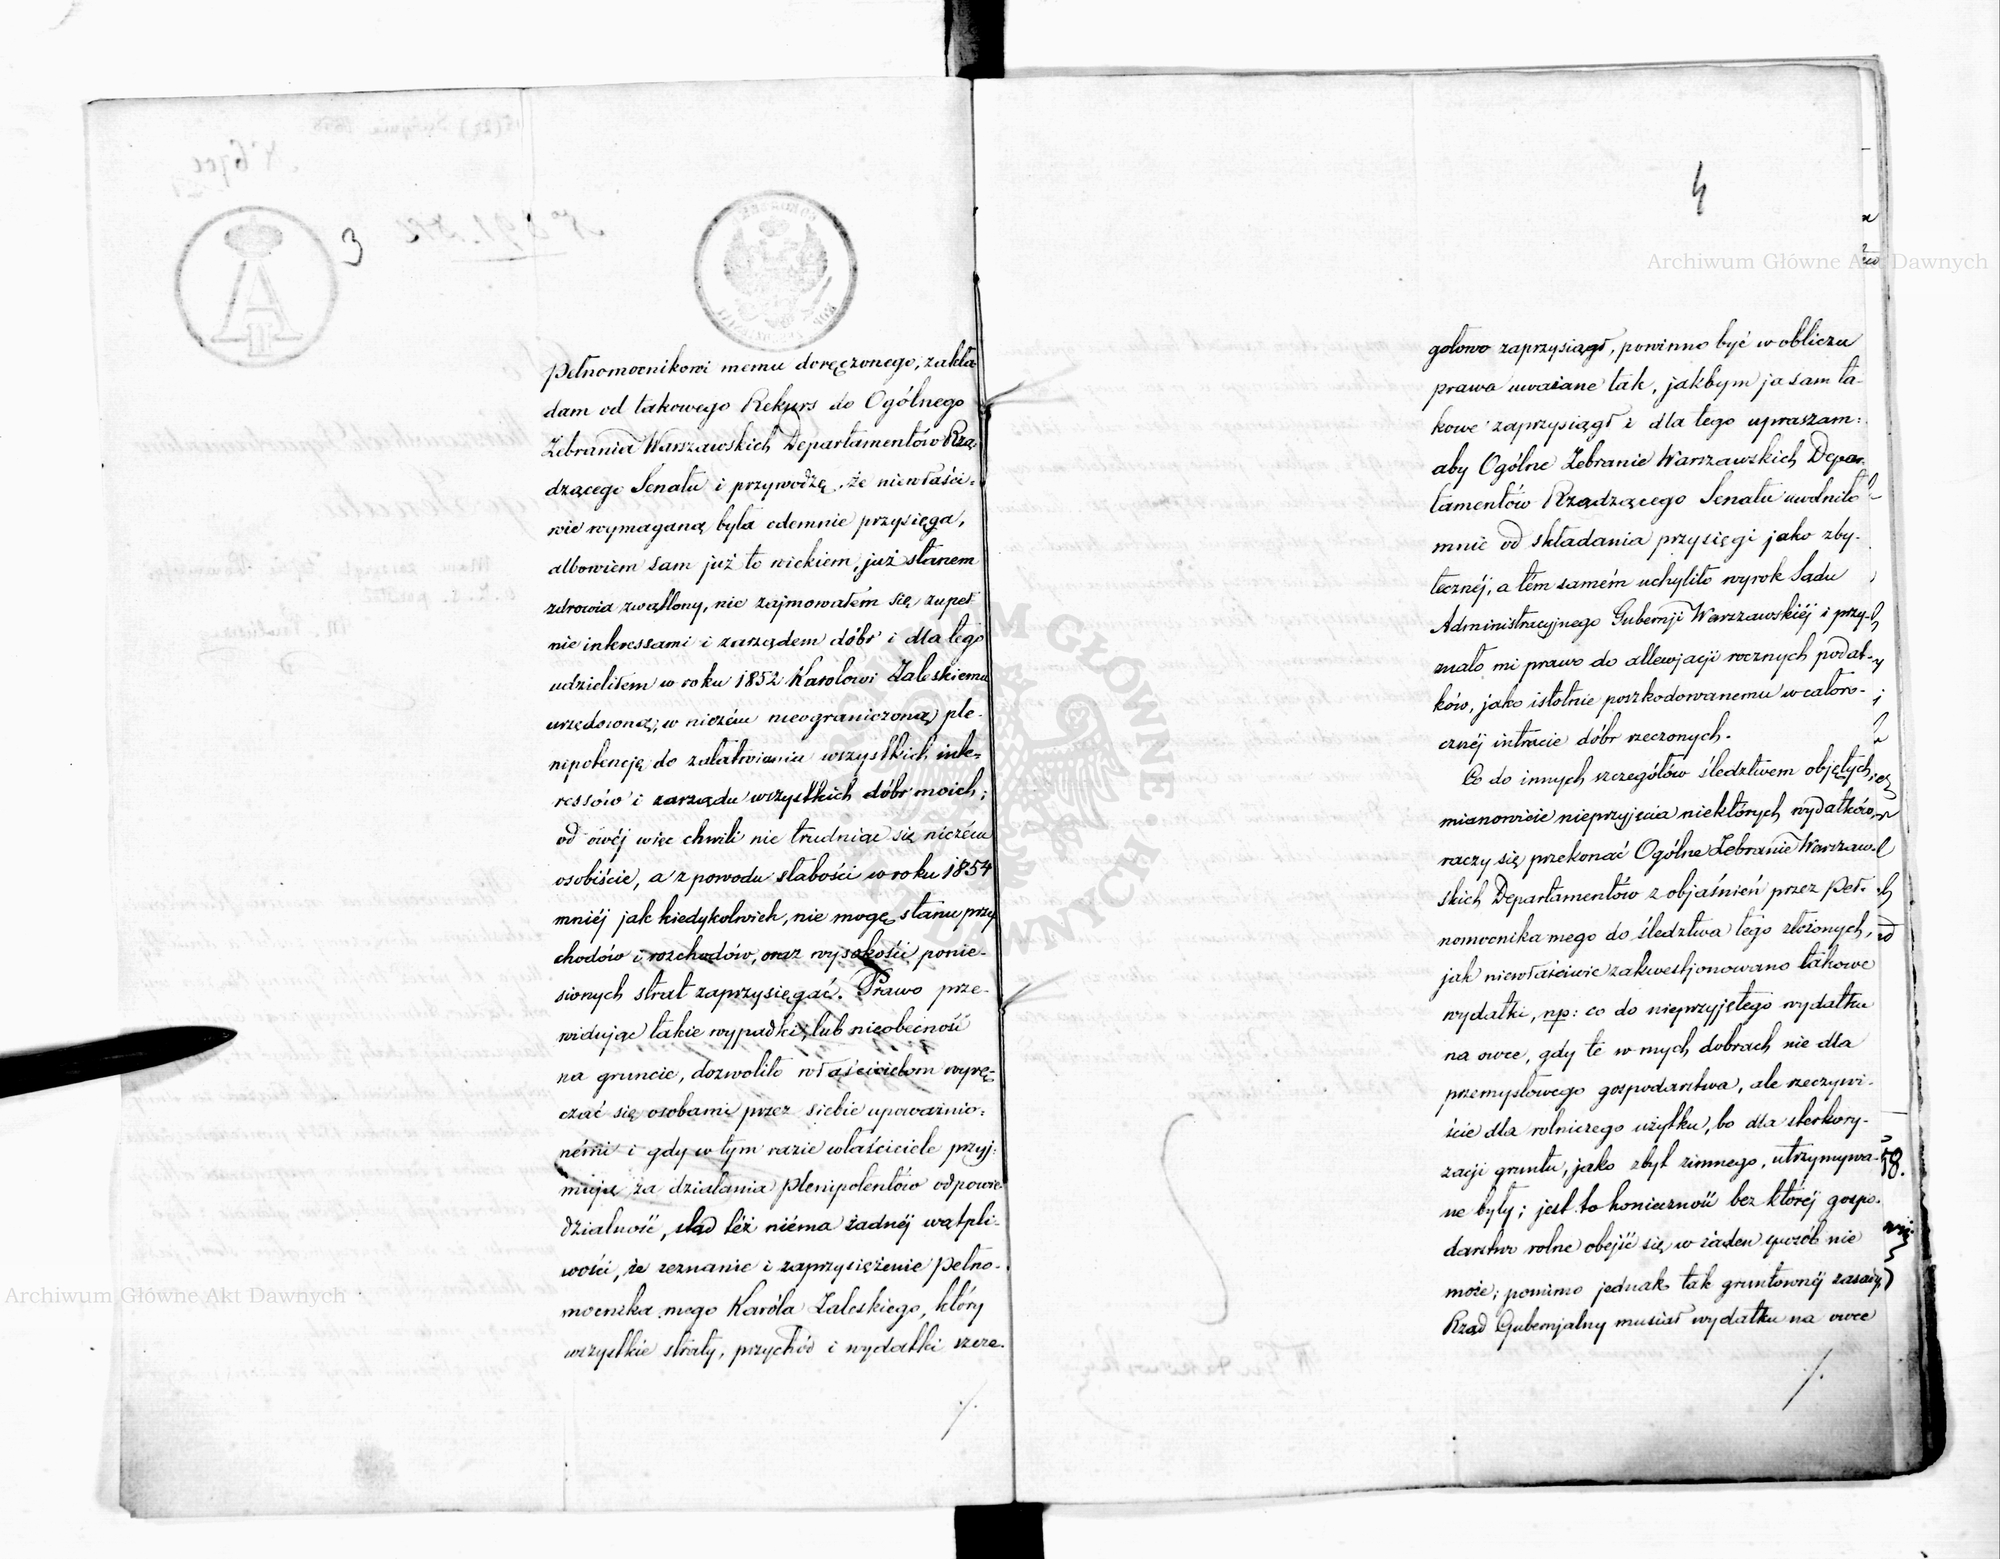 3
pełnomocnikowi memu doręczonego, zakła-
dam od takowego Rekurs do Ogólnego
Zebrania Warszawskich Departamentów Rzą-
dzącego Senatu i przywodzę, że niewłaści-
wie wymaganą była odemnie przysięga,
albowiem sam już to wiekiem, już stanem
zdrowia zwątlony, nie zajmowałem się zupeł
nie interessami i zarządem dóbr i dla tego
udzieliłem w roku 1852 Karolowi Zaleskiemu
urzędową, w niczém nieograniczoną ple-
nipotencję do załatwiania wszystkich inte-
ressów i zarządu wszystkich dóbr moich;
od owéj więc chwili nie trudniąc się niczém
osobiście, a z powodu słabości w roku 1854
mniéj jak kiedykolwiek, nie mogę stanu przy
chodów i rozchodów, oraz wysokości ponie-
sionych strat zaprzysięgać. Prawo prze-
widując takie wypadki, lub nieobecność
na gruncie, dozwoliło właścicielom wyrę-
czać się osobami przez siebie upoważnio-
némi i gdy w tym razie właściciele przyj-
mują za działania plenipotentów odpowie
dzialność, stąd téż niéma żadnéj wątpli-
wości, że zeznanie i zaprzysiężenie pełno-
mocnika mego Karóla Zaleskiego, który
wszystkie straty, przychód i wydatki szcze-
./.
4
gołowo zaprzysiągł, powinno być w obliczu
prawa uważane tak, jakbym ja sam ta-
kowe zaprzysiągł i dla tego upraszam:
aby Ogólne Zebranie Warszawskich Depar-
tamentów Rządzącego Senatu uwolniło
mnie od składania przysięgi jako zby-
tecznéj, a tém samém uchyliło wyrok Sądu
Administracyjnego Gubernji Warszawskiéj i przy-
znało mi prawo do allewjacji rocznych podat-
ków, jako istotnie poszkodowanemu w całoro-
cznéj intracie dóbr rzeczonych.
Co do innych szczegółów śledztwem objętych,
mianowicie nieprzyjęcia niektórych wydatków,
raczy się przekonać Ogólne Zebranie Warszaw-
skich Departamentów z objaśnień przez peł-
nomocnika mego do śledztwa tego złożonych,
jak niewłaściwie zakwestjonowano takowe
wydatki, np: co do nieprzyjętego wydatku
na owce, gdy te w mych dobrach nie dla
przemysłowego gospodarstwa, ale rzeczywi-
ście dla rolniczego użytku, bo dla sterkory-
zacji gruntu, jako zbyt zimnego, utrzymywa-
ne były; jest to konieczność bez któréj gospo-
darstwo rolne obejść się w żaden sposób nie
może; pomimo jednak tak gruntownéj zasady
Rząd Gubernjalny musiał wydatku na owce
./.
Archiwum Główne Akt Dawnych
Archiwum Główne Akt Dawnych
ARCHIWUM GŁÓWNE AKT DAWNYCH